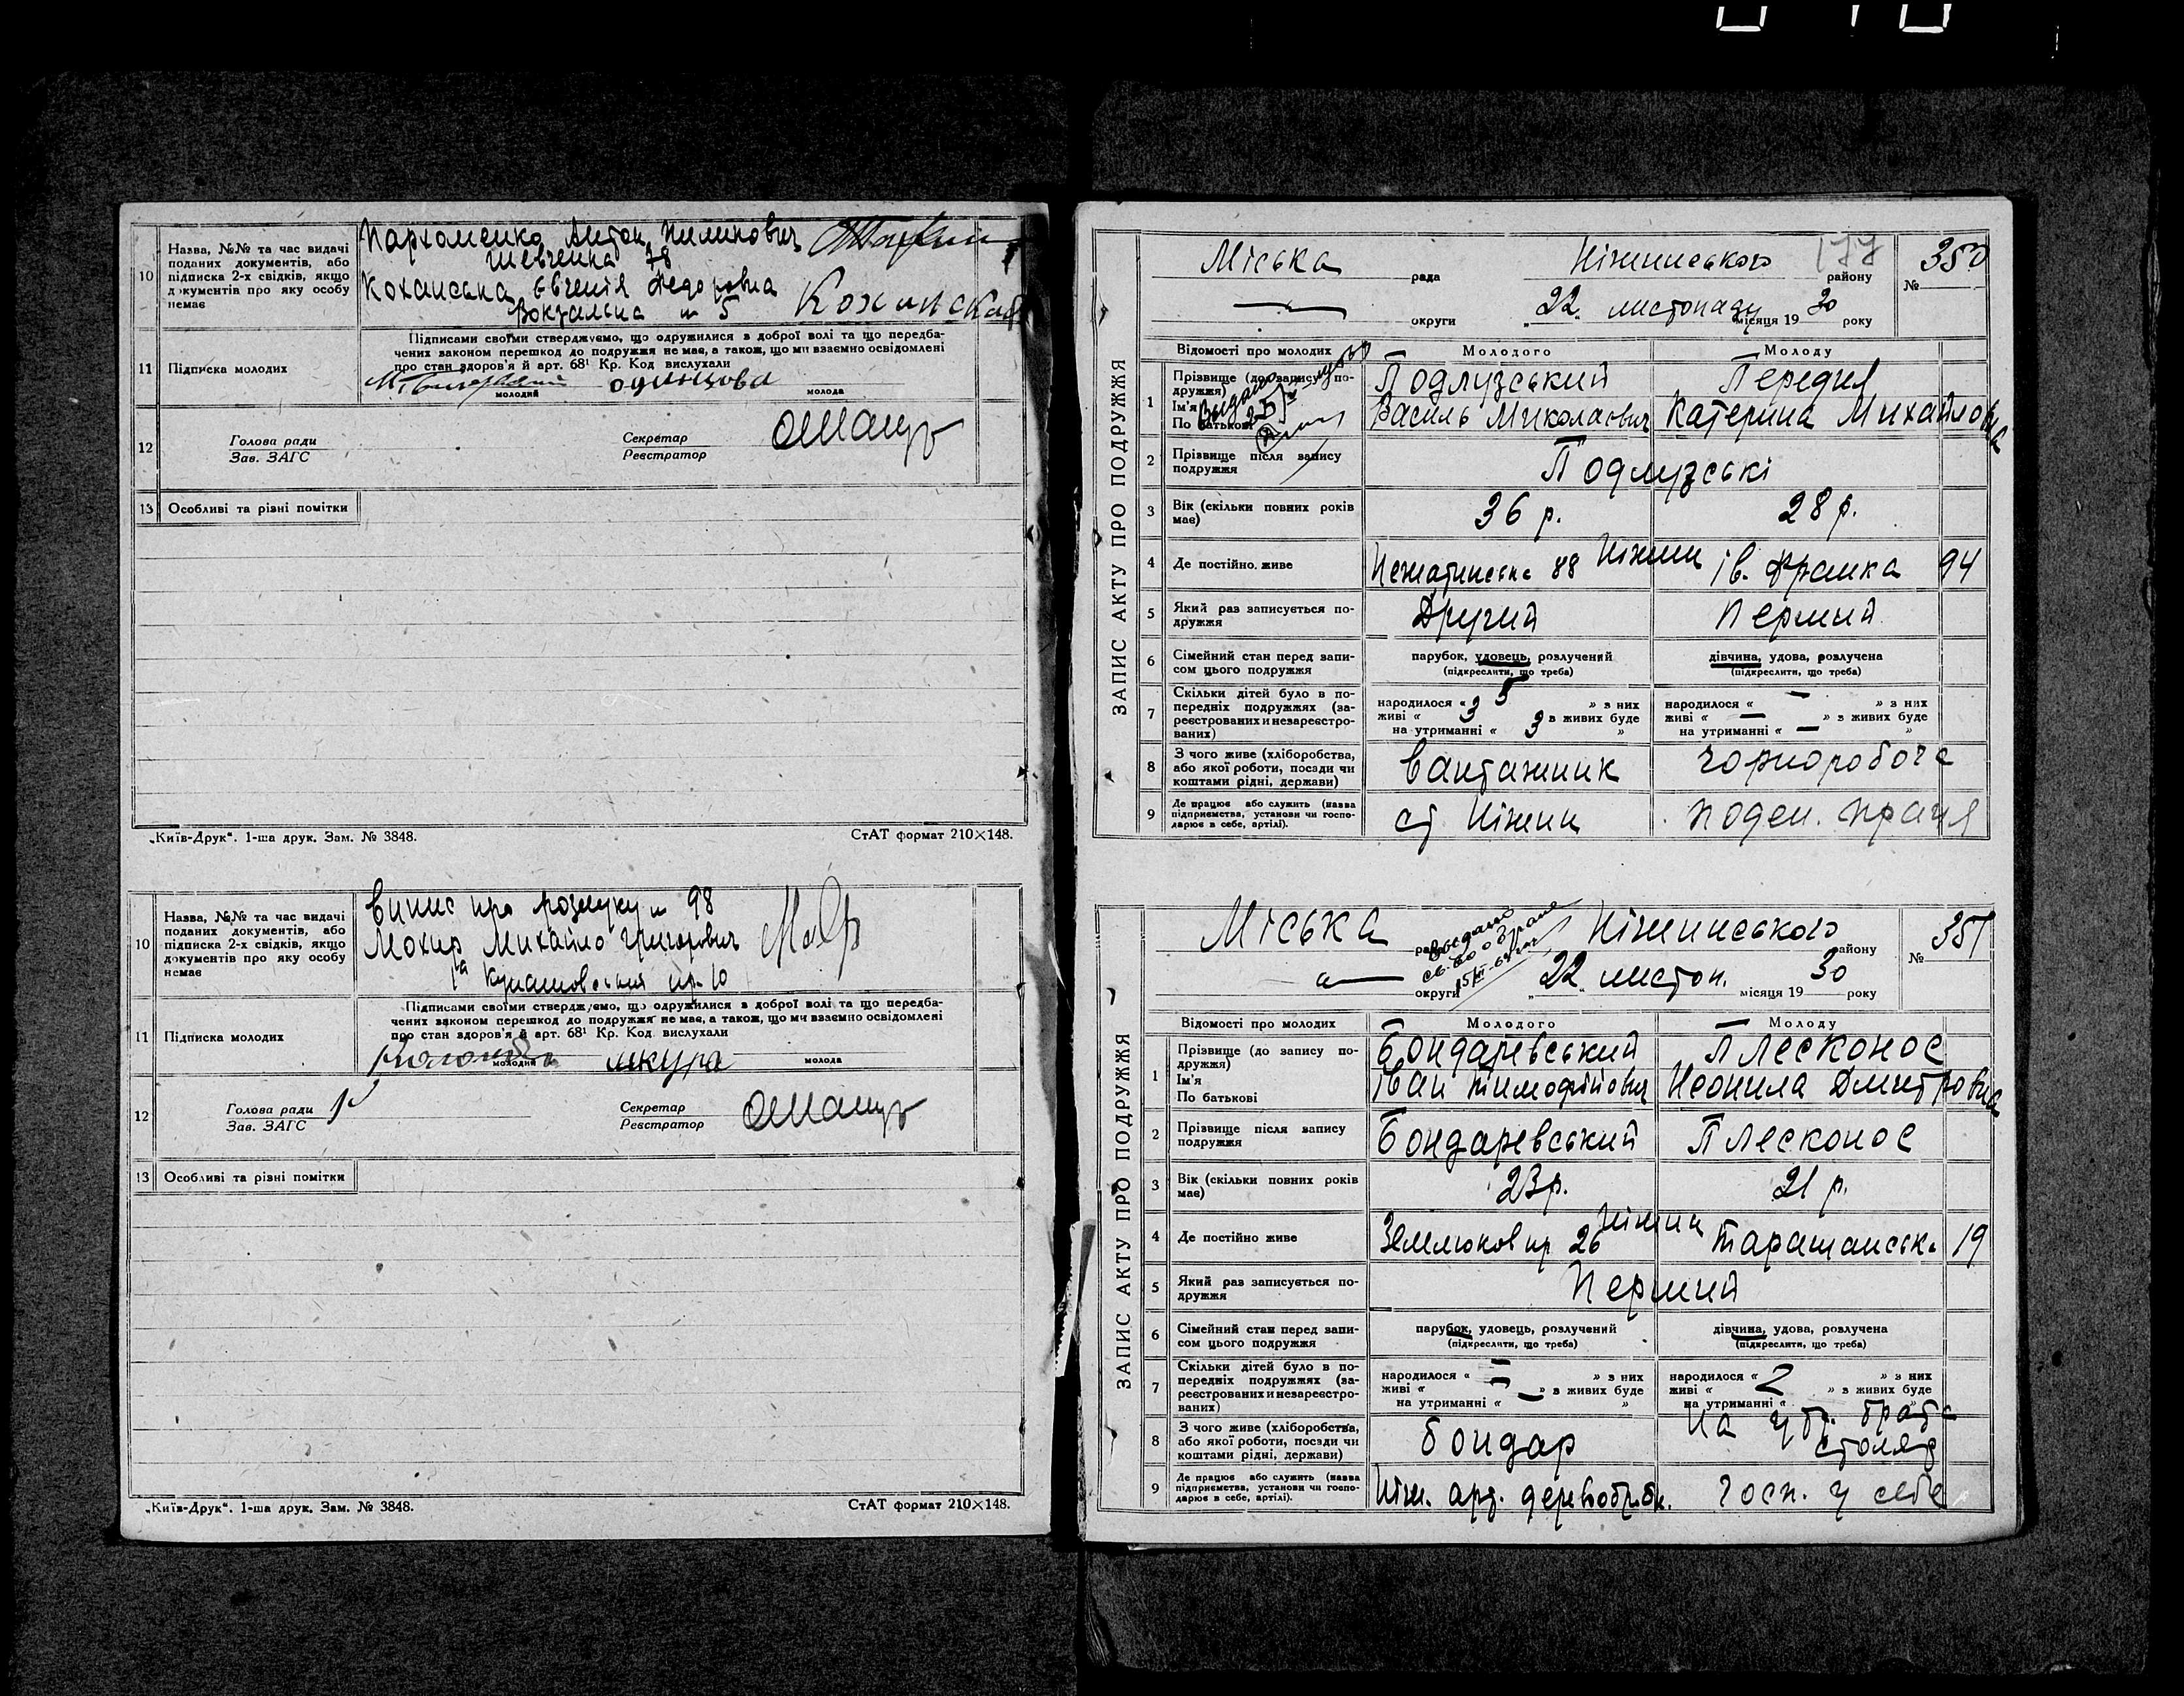 10
Назва, №№ та час видачі
поданих документів, або
підписка 2-х свідків, якщо
документів про яку особу
немає
Пархоменко Антон Пилипович
Шевченка 78
Коханська Євгенія Федоровна
Вокзальна № 5
11
Підписка молодих
Підписами своїми стверджуємо, що одружилися з доброї волі та що передба-
чених законом перешкод до подружжя не має, а також, що ми взаємно освідомлені
про стан здоров'я й арт. 68¹ Кр. Код вислухали
одинцова
молодий
молода
12
Голова ради
Зав. ЗАГС
Секретар
Реєстратор
13
Особливі та різні помітки
„Київ-Друк“. 1-ша друк. Зам. № 3848.
СтАТ формат 210×148.
10
Назва, №№ та час видачі
поданих документів, або
підписка 2-х свідків, якщо
документів про яку особу
немає
Випис про розлуку № 98
Мохир Михайло Григорович
11
Підписка молодих
Підписами своїми стверджуємо, що одружилися з доброї волі та що передба-
чених законом перешкод до подружжя не має, а також, що ми взаємно освідомлені
про стан здоров'я й арт. 68¹ Кр. Код вислухали
шкура
молодий
молода
12
Голова ради
Зав. ЗАГС
Секретар
Реєстратор
13
Особливі та різні помітки
„Київ-Друк“. 1-ша друк. Зам. № 3848.
СтАТ формат 210×148.
177
Міська рада Ніжинського району № 350
округи „22“ листопаду місяця 1930 року
ЗАПИС АКТУ ПРО ПОДРУЖЖЯ
Відомості про молодих
Молодого
Молоду
1
Прізвище (до запису по-
дружжя)
Ім'я
По батькові
Подлузський
Василь Миколаєвич
Передня
Катерина Михайловна
2
Прізвище після запису
подружжя
Подлузські
3
Вік (скільки повних років
має)
36 р.
28 р.
4
Де постійно живе
88 Ніжин Ів. Франка 94
5
Який раз записується по-
дружжя
Другий
Перший
6
Сімейний стан перед запи-
сом цього подружжя
парубок, удовець, розлучений
(підкреслити, що треба)
дівчина, удова, розлучена
(підкреслити, що треба)
7
Скільки дітей було в по-
передніх подружжях (за-
реєстрованих и незареєстро-
ваних)
народилося « 5 » з них
живі « 3 » з живих буде
на утриманні « 3 »
народилося « – » з них
живі « – » з живих буде
на утриманні « – »
8
З чого живе (хліборобства,
або якої роботи, посади чи
коштами рідні, держави)
вантажник
чорноробоча
9
Де працює або служить (назва
підприємства, установи чи госпо-
дарює в себе, артілі).
ст Ніжин
поден. праця
Міська рада Ніжинського району № 351
округи „22“ листоп. місяця 1930 року
ЗАПИС АКТУ ПРО ПОДРУЖЖЯ
Відомості про молодих
Молодого
Молоду
1
Прізвище (до запису по-
дружжя)
Ім'я
По батькові
Бондаревський
Іван Тимофійович
Плесконос
Неонила Дмитровна
2
Прізвище після запису
подружжя
Бондаревський
Плесконос
3
Вік (скільки повних років
має)
23 р.
21 р.
4
Де постійно живе
26 Ніжин Таращанськ. 19
5
Який раз записується по-
дружжя
Перший
6
Сімейний стан перед запи-
сом цього подружжя
парубок, удовець, розлучений
(підкреслити, що треба)
дівчина, удова, розлучена
(підкреслити, що треба)
7
Скільки дітей було в по-
передніх подружжях (за-
реєстрованих и незареєстро-
ваних)
народилося « – » з них
живі « – » з живих буде
на утриманні « – »
народилося « » з них
живі « » з живих буде
на утриманні « »
8
З чого живе (хліборобства,
або якої роботи, посади чи
коштами рідні, держави)
бондар
на утр. брата
столяр
9
Де працює або служить (назва
підприємства, установи чи госпо-
дарює в себе, артілі).
Ніж. арт.
госп. у себе